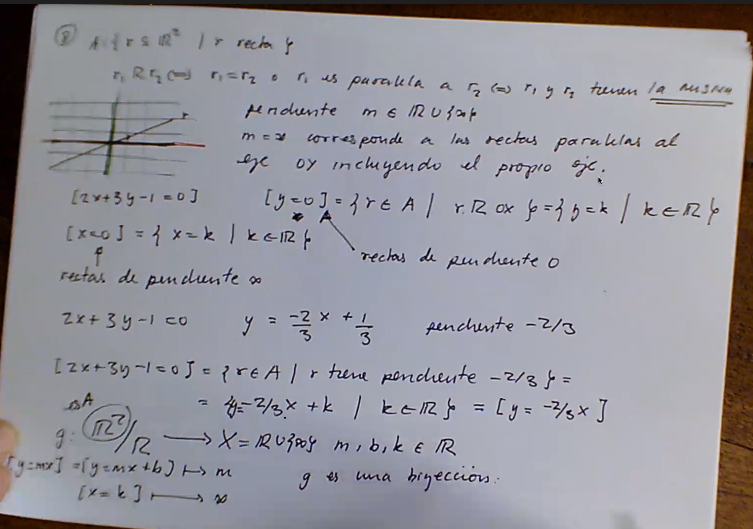 ⑧ A = { r ⊆ ℝ² / r recta }
r₁ R r₂ ⟺ r₁ = r₂ o r₁ es paralela a r₂ ⟺ r₁ y r₂ tienen la misma
pendiente m ∈ ℝ ∪ {∞}
m = ∞ corresponde a las rectas paralelas al
eje OY incluyendo el propio eje.
r
[2x+3y-1=0] [y=0] = { r ∈ A | r R OX } = { y=k | k ∈ ℝ }
[x=0] = { x=k | k ∈ ℝ }
rectas de pendiente 0
rectas de pendiente ∞
2x+3y-1=0 y = -2/3 x + 1/3 pendiente -2/3
[2x+3y-1=0] = { r ∈ A | r tiene pendiente -2/3 } =
= { y=-2/3x + k | k ∈ ℝ } = [y = -2/3x]
es A
g: ℝ²/R ⟶ X = ℝ ∪ {∞} m, b, k ∈ ℝ
[y=mx] = [y=mx+b] ⟼ m g es una biyección.
[x=k] ⟼ ∞